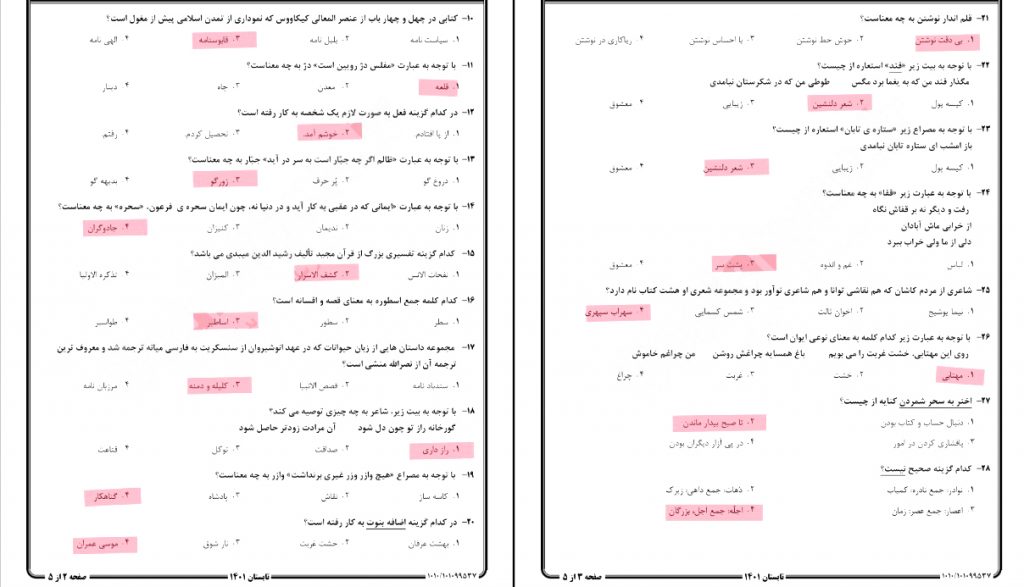 ۱۰- کتابی در چهل و چهار باب از عنصر المعالی کیکاووس که نموداری از تمدن اسلامی پیش از مغول است؟
۱. سیاست نامه ۲. بلبل نامه ۳. قابوسنامه ۴. الهی نامه
۱۱- با توجه به عبارت «مفلس دژ رویین است» دژ به چه معناست؟
۱. قلعه ۲. معدن ۳. چاه ۴. دینار
۱۲- در کدام گزینه فعل به صورت لازم یک شخصه به کار رفته است؟
۱. از پا افتادم. ۲. خوشم آمد. ۳. تحصیل کردم. ۴. رفتم
۱۳- با توجه به عبارت «ظالم اگر چه جبّار است به سر در آید» جبّار به چه معناست؟
۱. دروغ گو ۲. پُر حرف ۳. زورگو ۴. بدیهه گو
۱۴- با توجه به عبارت «ایمانی که در عقبی به کار آید و در دنیا نه، چون ایمان سحره ی فرعون، «سحره» به چه معناست؟
۱. زنان ۲. ندیمان ۳. کنیزان ۴. جادوگران
۱۵- کدام گزینه تفسیری بزرگ از قرآن مجید تألیف رشید الدین میبدی می باشد؟
۱. نفحات الانس ۲. کشف الاسرار ۳. المیزان ۴. تذکره الاولیا
۱۶- کدام کلمه جمع اسطوره به معنای قصه و افسانه است؟
۱. سطر ۲. سطور ۳. اساطیر ۴. طوانسیر
۱۷- مجموعه داستان هایی از زبان حیوانات که در عهد انوشیروان از سنسکریت به فارسی میانه ترجمه شد و معروف ترین
ترجمه آن از نصرالله منشی است؟
۱. سندباد نامه ۲. قصص الانبیا ۳. کلیله و دمنه ۴. مرزبان نامه
۱۸- با توجه به بیت زیر، شاعر به چه چیزی توصیه می کند؟
گورخانه راز تو چون دل شود آن مرادت زودتر حاصل شود
۱. راز داری ۲. صداقت ۳. توکل ۴. قناعت
۱۹- با توجه به مصراع «هیچ وازر وزر غیری برنداشت» وازر به چه معناست؟
۱. کاسه ساز ۲. نقاش ۳. پادشاه ۴. گناهکار
۲۰- در کدام گزینه اضافه بنوت به کار رفته است؟
۱. بهشت عرفان ۲. خشت غربت ۳. نار شوق ۴. موسی عمران
صفحه ۲ از ۵ تابستان ۱۴۰۱ ۱۰۱۰/۱۰۱۰۹۹۵۳۷
۲۱- قلم انداز نوشتن به چه معناست؟
۱. بی دقت نوشتن ۲. خوش خط نوشتن ۳. با احساس نوشتن ۴. ریاکاری در نوشتن
۲۲- با توجه به بیت زیر «قند» استعاره از چیست؟
مگذار قند من که به یغما برد مگس طوطی من که در شکرستان نیامدی
۱. کیسه پول ۲. شعر دلنشین ۳. زیبایی ۴. معشوق
۲۳- با توجه به مصراع زیر «ستاره ی تابان» استعاره از چیست؟
باز امشب ای ستاره تابان نیامدی
۱. کیسه پول ۲. زیبایی ۳. شعر دلنشین ۴. معشوق
۲۴- با توجه به عبارت زیر «قفا» به چه معناست؟
رفت و دیگر نه بر قفاش نگاه
از خرابی ماش آبادان
دلی از ما ولی خراب ببرد
۱. لباس ۲. غم و اندوه ۳. پشت سر ۴. معشوق
۲۵- شاعری از مردم کاشان که هم نقاشی توانا و هم شاعری نوآور بود و مجموعه شعری او هشت کتاب نام دارد؟
۱. نیما یوشیج ۲. اخوان ثالث ۳. شمس کسمایی ۴. سهراب سپهری
۲۶- با توجه به عبارت زیر کدام کلمه به معنای نوعی ایوان است؟
روی این مهتابی، خشت غربت را می بویم باغ همسایه چراغش روشن من چراغم خاموش
۱. مهتابی ۲. خشت ۳. غربت ۴. چراغ
۲۷- اختر به سحر شمردن کنایه از چیست؟
۱. دنبال حساب و کتاب بودن ۲. تا صبح بیدار ماندن
۳. پافشاری کردن در امور ۴. در پی آزار دیگران بودن
۲۸- کدام گزینه صحیح نیست؟
۱. نوادر: جمع نادره، کمیاب ۲. دُهات: جمع داهی: زیرک
۳. اعصار: جمع عصر: زمان ۴. اجلّه: جمع اجل، بزرگان
صفحه ۳ از ۵ تابستان ۱۴۰۱ ۱۰۱۰/۱۰۱۰۹۹۵۳۷